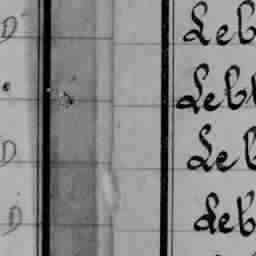 D Leb
Leb
D Leb
D Leb